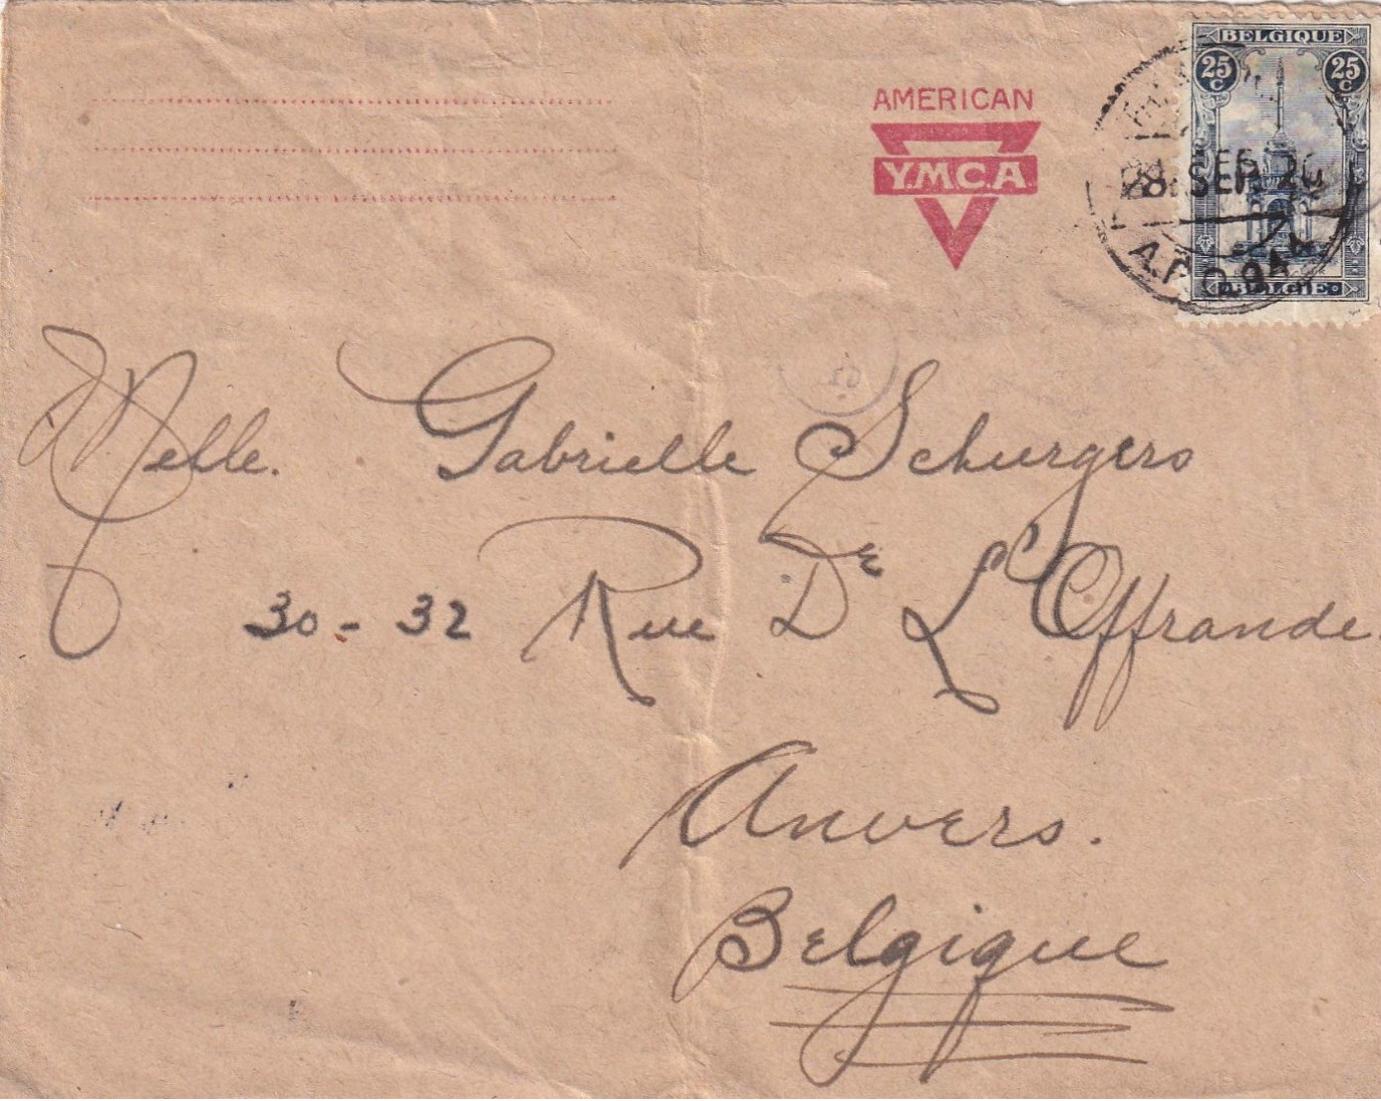 AMERICAN
Y.M.C.A.
BELGIQUE
25 C 25 C
SEP 20
A.P.O.
BELGIË
Melle. Gabrielle Schurgers
30-32 Rue De L'Offrande.
Anvers.
Belgique